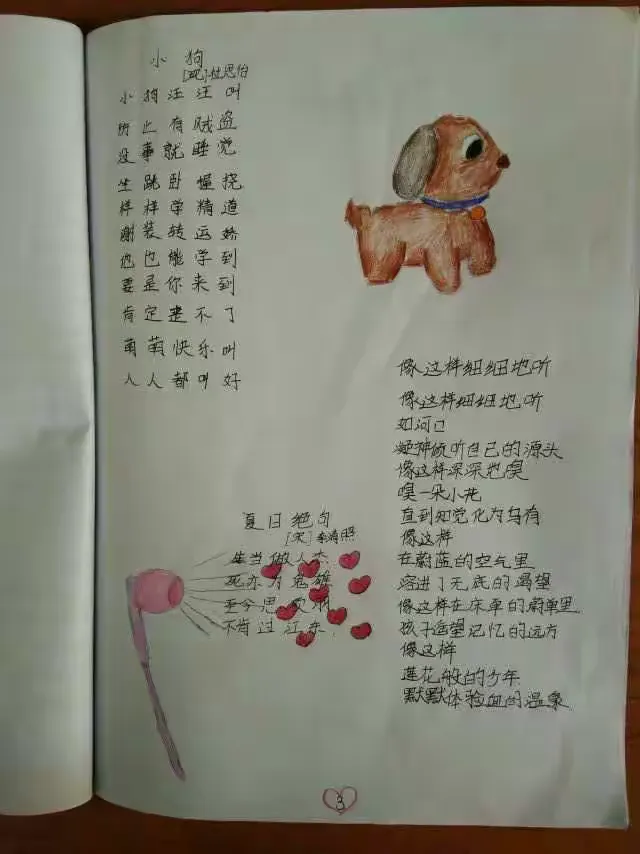 小狗
[现]杜思怡
小狗汪汪叫
防止有贼盗
没事就睡觉
坐跳卧握挠
样样学精道
谢装转运娇
他也能学到
要是你来到
肯定走不了
萌萌快乐叫
人人都叫好
夏日绝句
[宋]李清照
生当做人杰
死亦为鬼雄
至今思项羽
不肯过江东.
像这样细细地听
像这样细细地听
如河口
凝神倾听自己的源头
像这样深深地嗅
嗅一朵小花
直到知觉化为乌有
像这样
在蔚蓝的空气里
溶进了无底的渴望
像这样在床单的蔚单里
孩子遥望记忆的远方
像这样
莲花般的少年
默默体验血的温泉
3